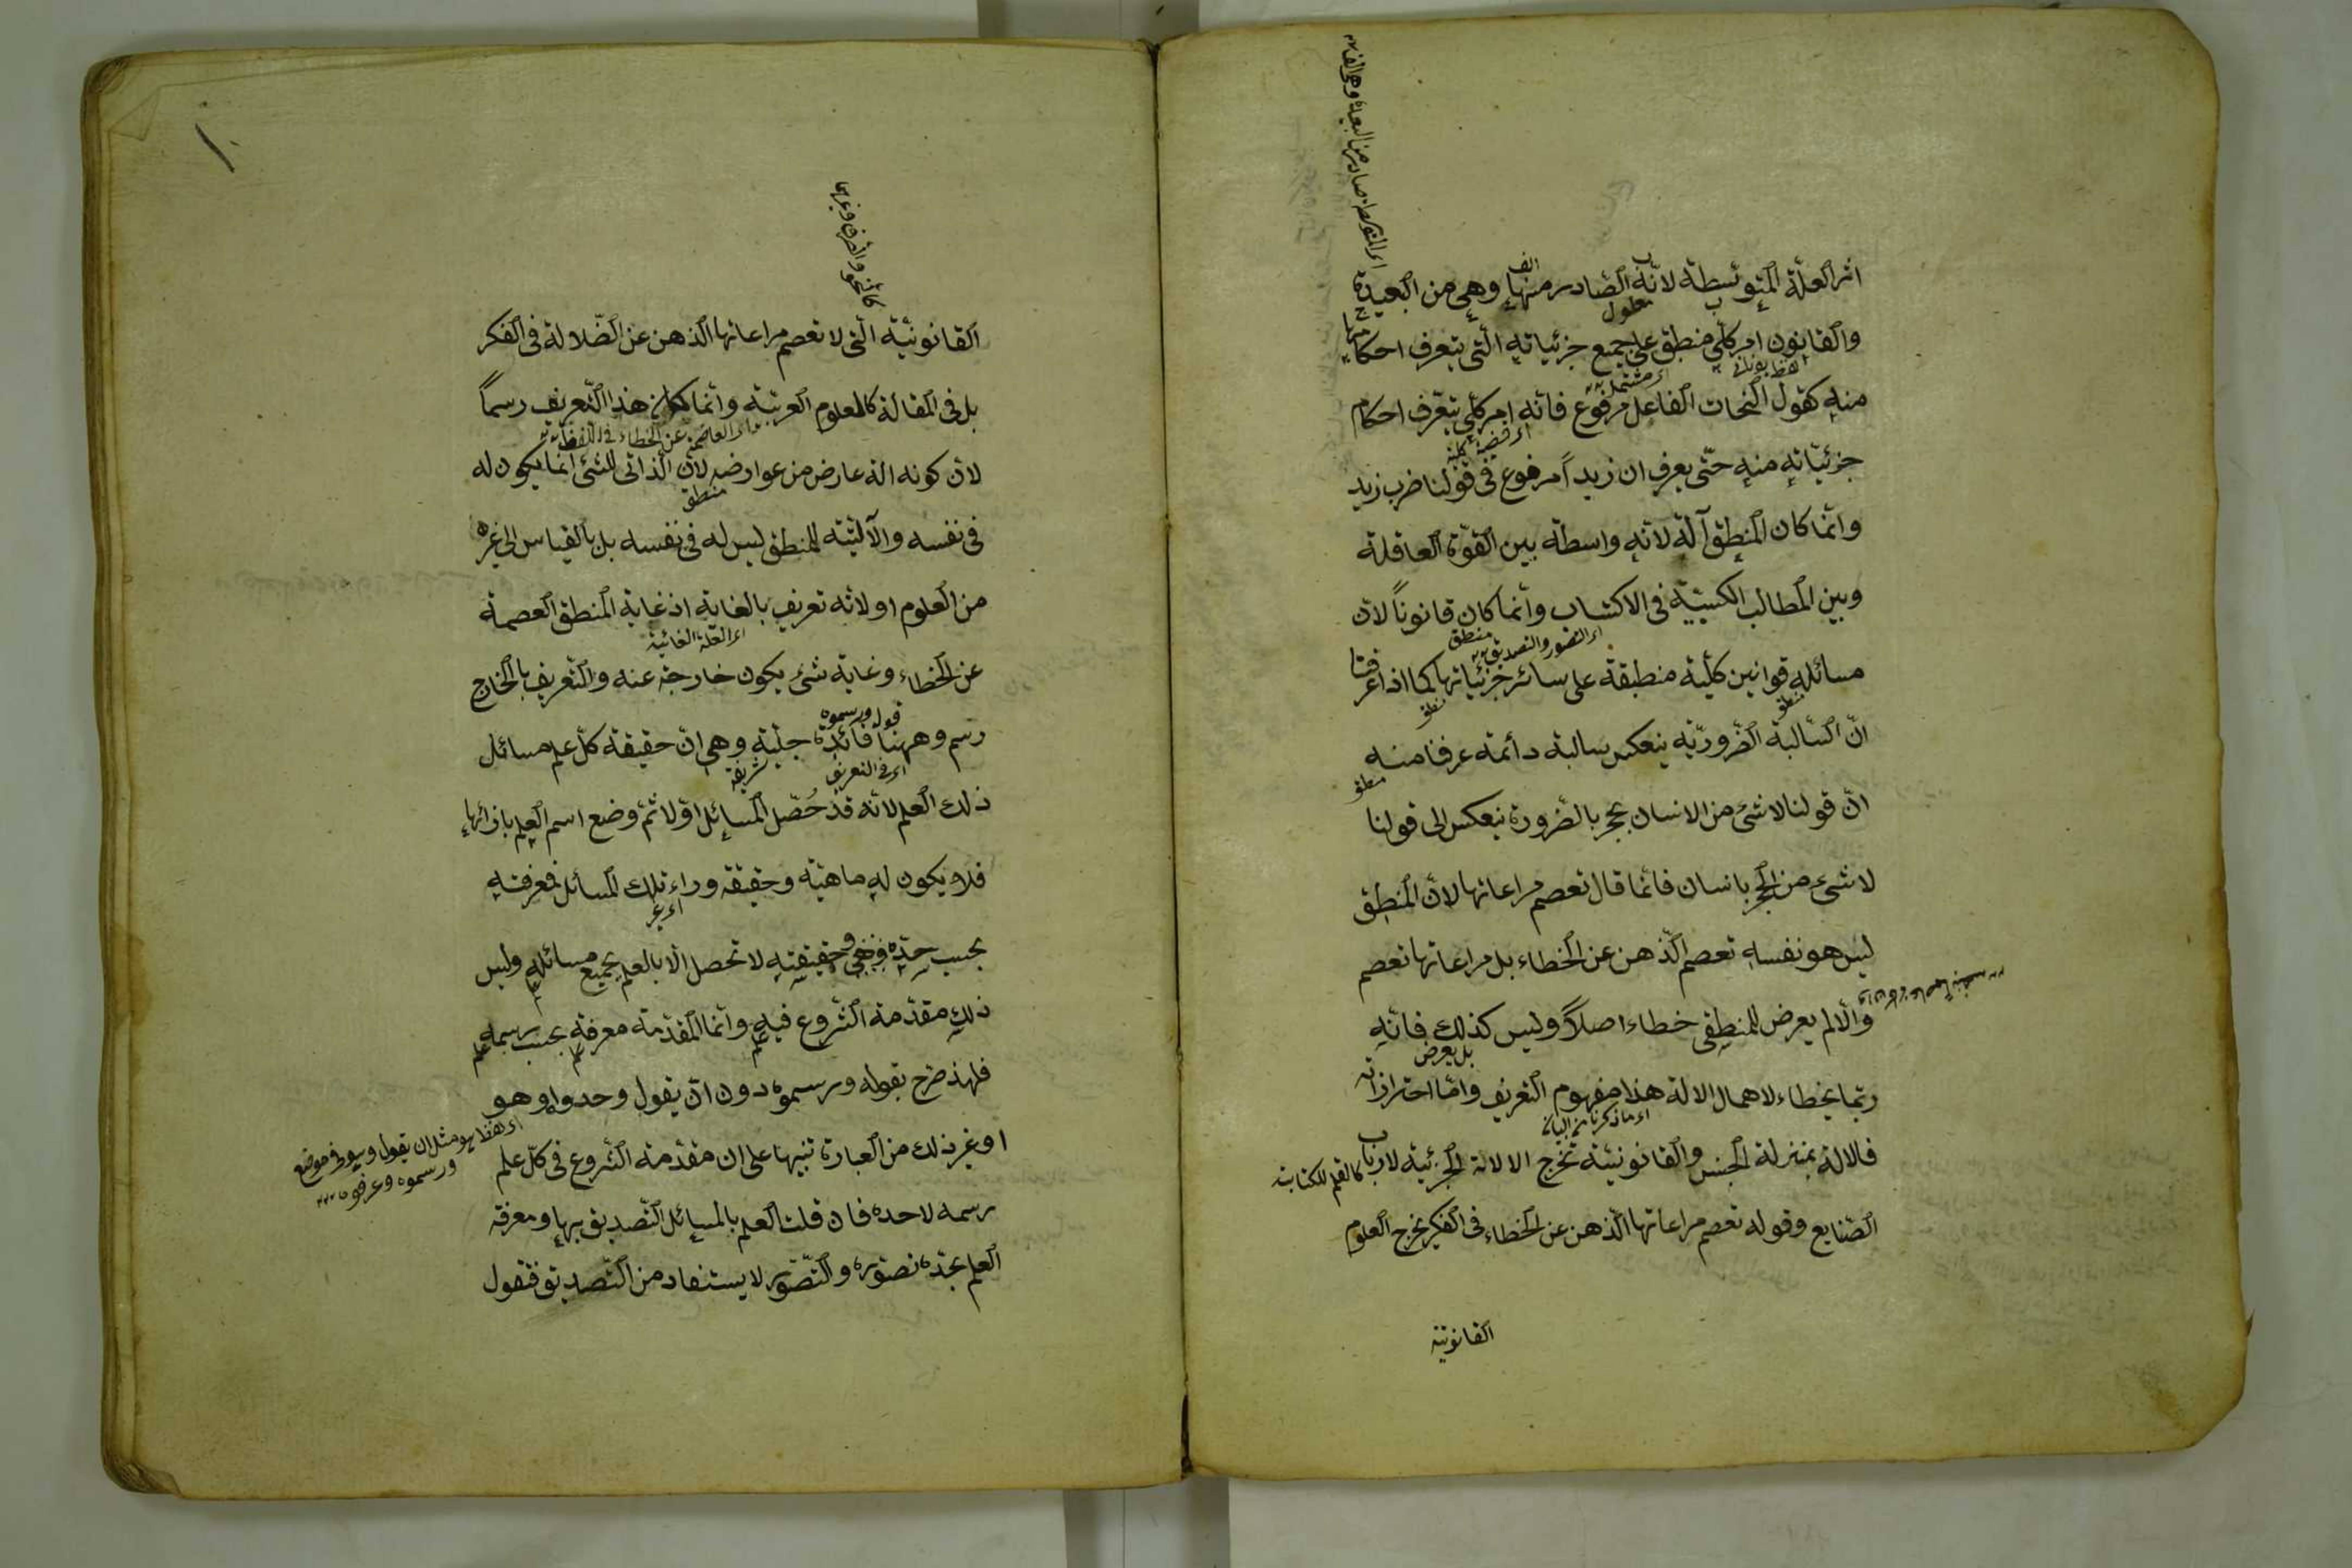 اثر العلة المتوسطة لانه الصادر منها وهى من البعيدة
والقانون امر كلى منطبق على جميع جزئياته التى يتعرف احكامها
منه كقول النحات الفاعل مرفوع فانه امر كلى يتعرف احكام
جزئياته منه حتى يعرف ان زيداً مرفوع فى قولنا ضرب زيد
وانما كان المنطق آلة لانه واسطة بين القوة العاقلة
وبين المطالب الكسبية فى الاكتساب وانما كان قانوناً لان
مسائله قوانين كلية منطبقة على سائر جزئياتها كما اذا عرفنا
ان السالبة الضرورية ينعكس سالبة دائمة عرفنا منه
ان قولنا لا شئ من الانسان بحجر بالضرورة ينعكس الى قولنا
لا شئ من الحجر بانسان فانما قال تعصم مراعاتها لان المنطق
ليس هو نفسه تعصم الذهن عن الخطاء بل مراعاتها تعصم
والا لم يعرض للمنطقى خطاء اصلاً وليس كذلك فانه
ربما يخطاء لاهمال الالة هذا مفهوم التعريف واما احترازاته
فالالة بمنزلة الجنس والقانونية تخرج الالات الجزئية لارباب
الصنايع وقوله تعصم مراعاتها الذهن عن الخطاء فى الفكر يخرج العلوم
القانونية
معلول
اى مشتمل
اى قضية كلية
اى التصور والتصديق
منطق
بل يعرض
اى ما ذكرنا من البيان
كالقلم للكتابة
القانونية التى لا تعصم مراعاتها الذهن عن الضلالة فى الفكر
بل فى المقالة كالعلوم العربية وانما كان هذا التعريف رسماً
لان كونه الة عارض من عوارضه لان الذاتى للشئ انما يكون له
فى نفسه والآلية للمنطق ليس له فى نفسه بل بالقياس الى غيره
من العلوم او لانه تعريف بالغاية اذ غاية المنطق العصمة
عن الخطاء وغاية شئ يكون خارجة عنه والتعريف بالخارج
رسم وههنا فائدة جلية وهى ان حقيقة كل علم مسائل
ذلك العلم لانه قد حصل المسائل اولا ثم وضع اسم العلم بازائها
فلا يكون له ماهية وحقيقة وراء تلك المسائل فمعرفته
بحسب حده وحقيقته لا تحصل الا بالعلم بجميع مسائله وليس
ذلك مقدمة الشروع فيه وانما المقدمة معرفة بحسب رسمه
فلهذا صرح بقوله ورسموه دون ان يقول وحدوه وهو
او غير ذلك من العبارة تنبيها على ان مقدمة الشروع فى كل علم
رسمه لا حده فان قلت العلم بالمسائل التصديق بها ومعرفة
العلم بحده تصوره والتصور لا يستفاد من التصديق فنقول
كالنحو والصرف وغيرها
منطق
اى العلة الغائية
قوله ورسموه
اى فى التعريف
شريفة
اى غير
ورسموه وعرفوه